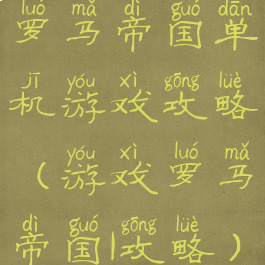 luó mǎ dì guó dān
罗马帝国单
jī yóu xì gōng lüè
机游戏攻略
yóu xì luó mǎ
（游戏罗马
dì guó gōng lüè
帝国|攻略）